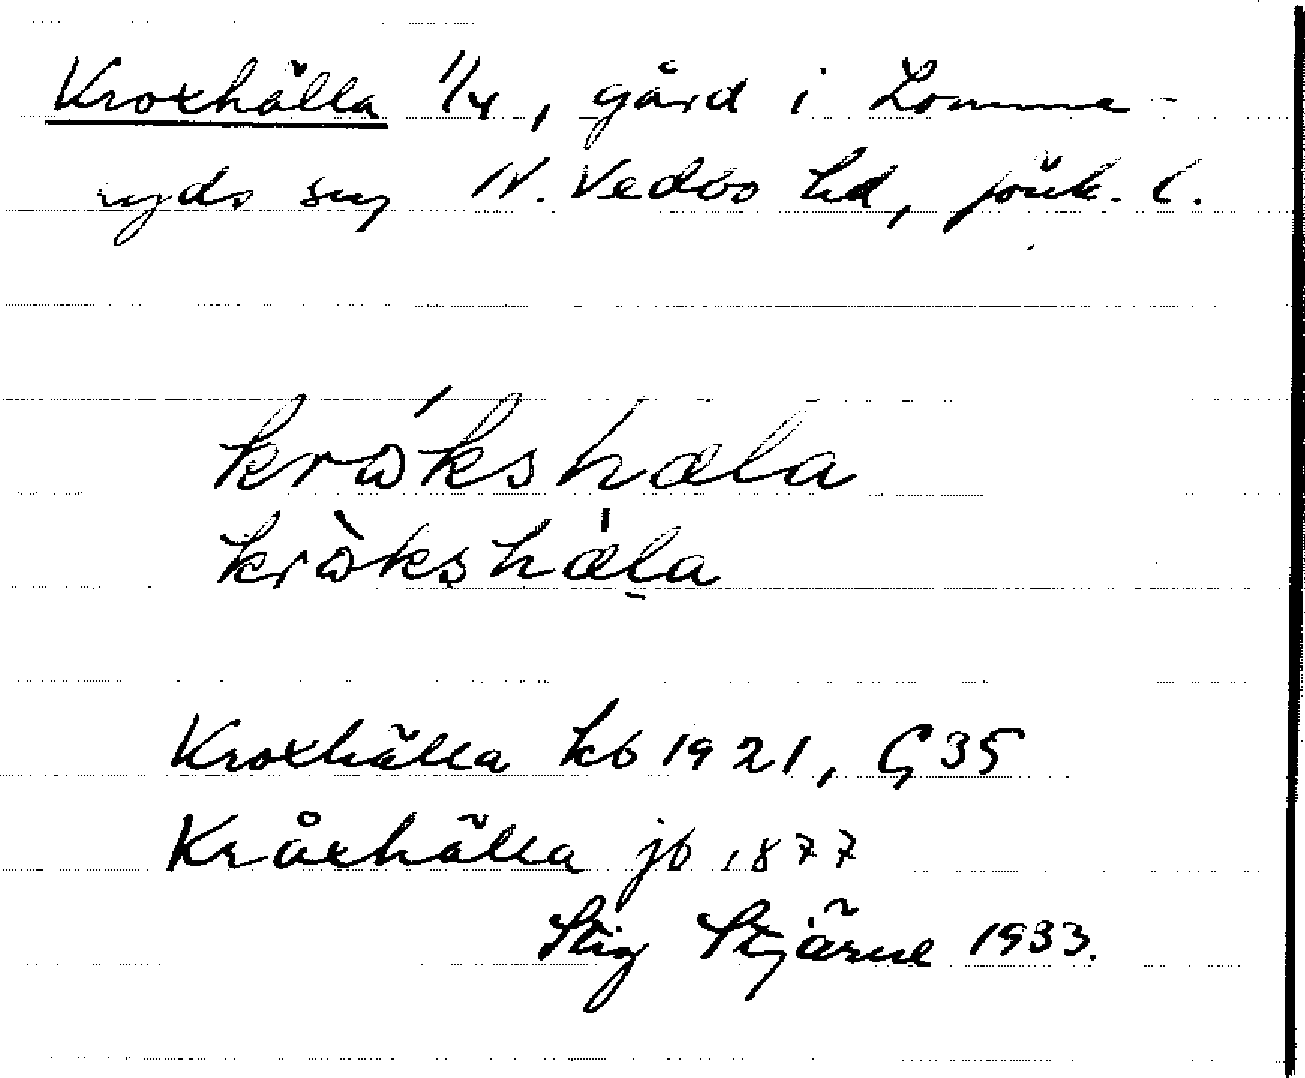 Kroxhälla 1/4, gård i Lomme-
ryds sn, N. Vedbo hd, Jönk. l.
krɷ́kshæla
krɷ̀kshæ̍la̱
Kroxhälla kb 1921, G35
Kråxhälla jb 1877
Stig Stjärne 1933.